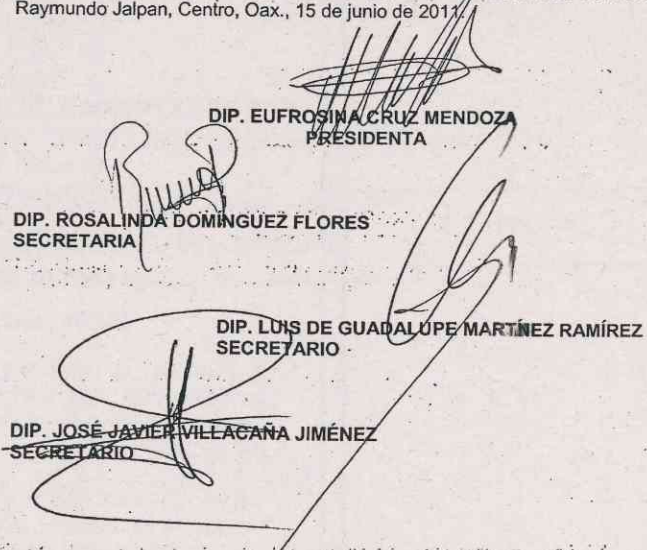 Raymundo Jalpan, Centro, Oax., 15 de junio de 2011.
DIP. EUFROSINA CRUZ MENDOZA
PRESIDENTA
DIP. ROSALINDA DOMÍNGUEZ FLORES
SECRETARIA
DIP. LUIS DE GUADALUPE MARTÍNEZ RAMÍREZ
SECRETARIO
DIP. JOSÉ JAVIER VILLACAÑA JIMÉNEZ
SECRETARIO